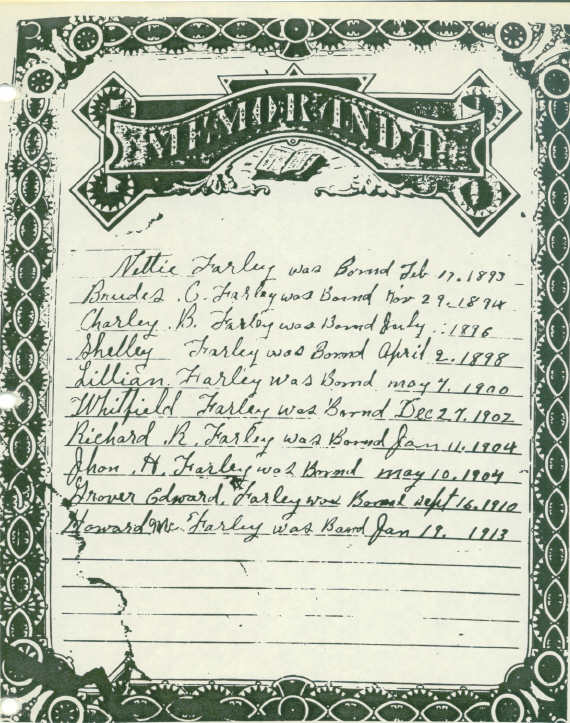 MEMORANDA
Nettie Farley was Bornd Feb 17. 1893
Brudes C. Farley was Bornd Nov 29-1894
Charley B. Farley was Bornd July 1896
Shelley Farley was Bornd April 2. 1898
Lillian Farley was Bornd may 7. 1900
Whitfield Farley was Bornd Dec 27. 1902
Richard R. Farley was Bornd Jan 11. 1904
Jhon H. Farley was Bornd may 10. 1904
Grover Edward Farley was Bornd sept 16. 1910
Howard Mc Farley was Band Jan 19. 1913